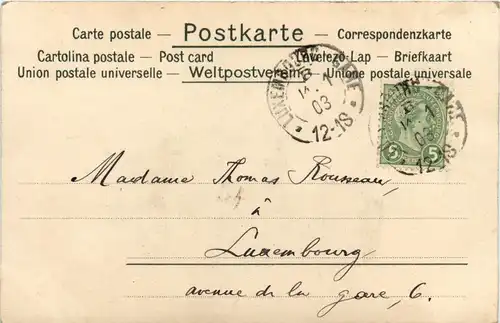 Carte postale — Postkarte — Correspondenzkarte
Cartolina postale — Post card — Levelezo-Lap — Briefkaart
Union postale universelle — Weltpostverein — Unione postale universale
LUXEMBOURG GARE
03
12-1S
5 5
03
12-1S
Madame Thomas Rousseau,
à
Luxembourg
avenue de la gare, 6.